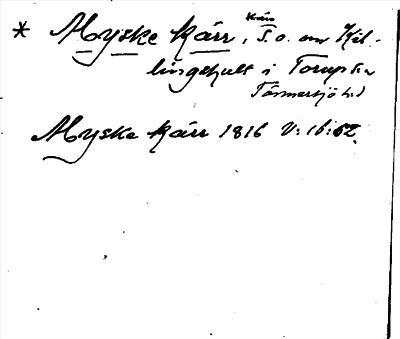 * Myske kärr, kärr S.o. om Kil-
lingehult i Torup sn
Tönnersjö hd
Myske kärr 1816 V:16:62.